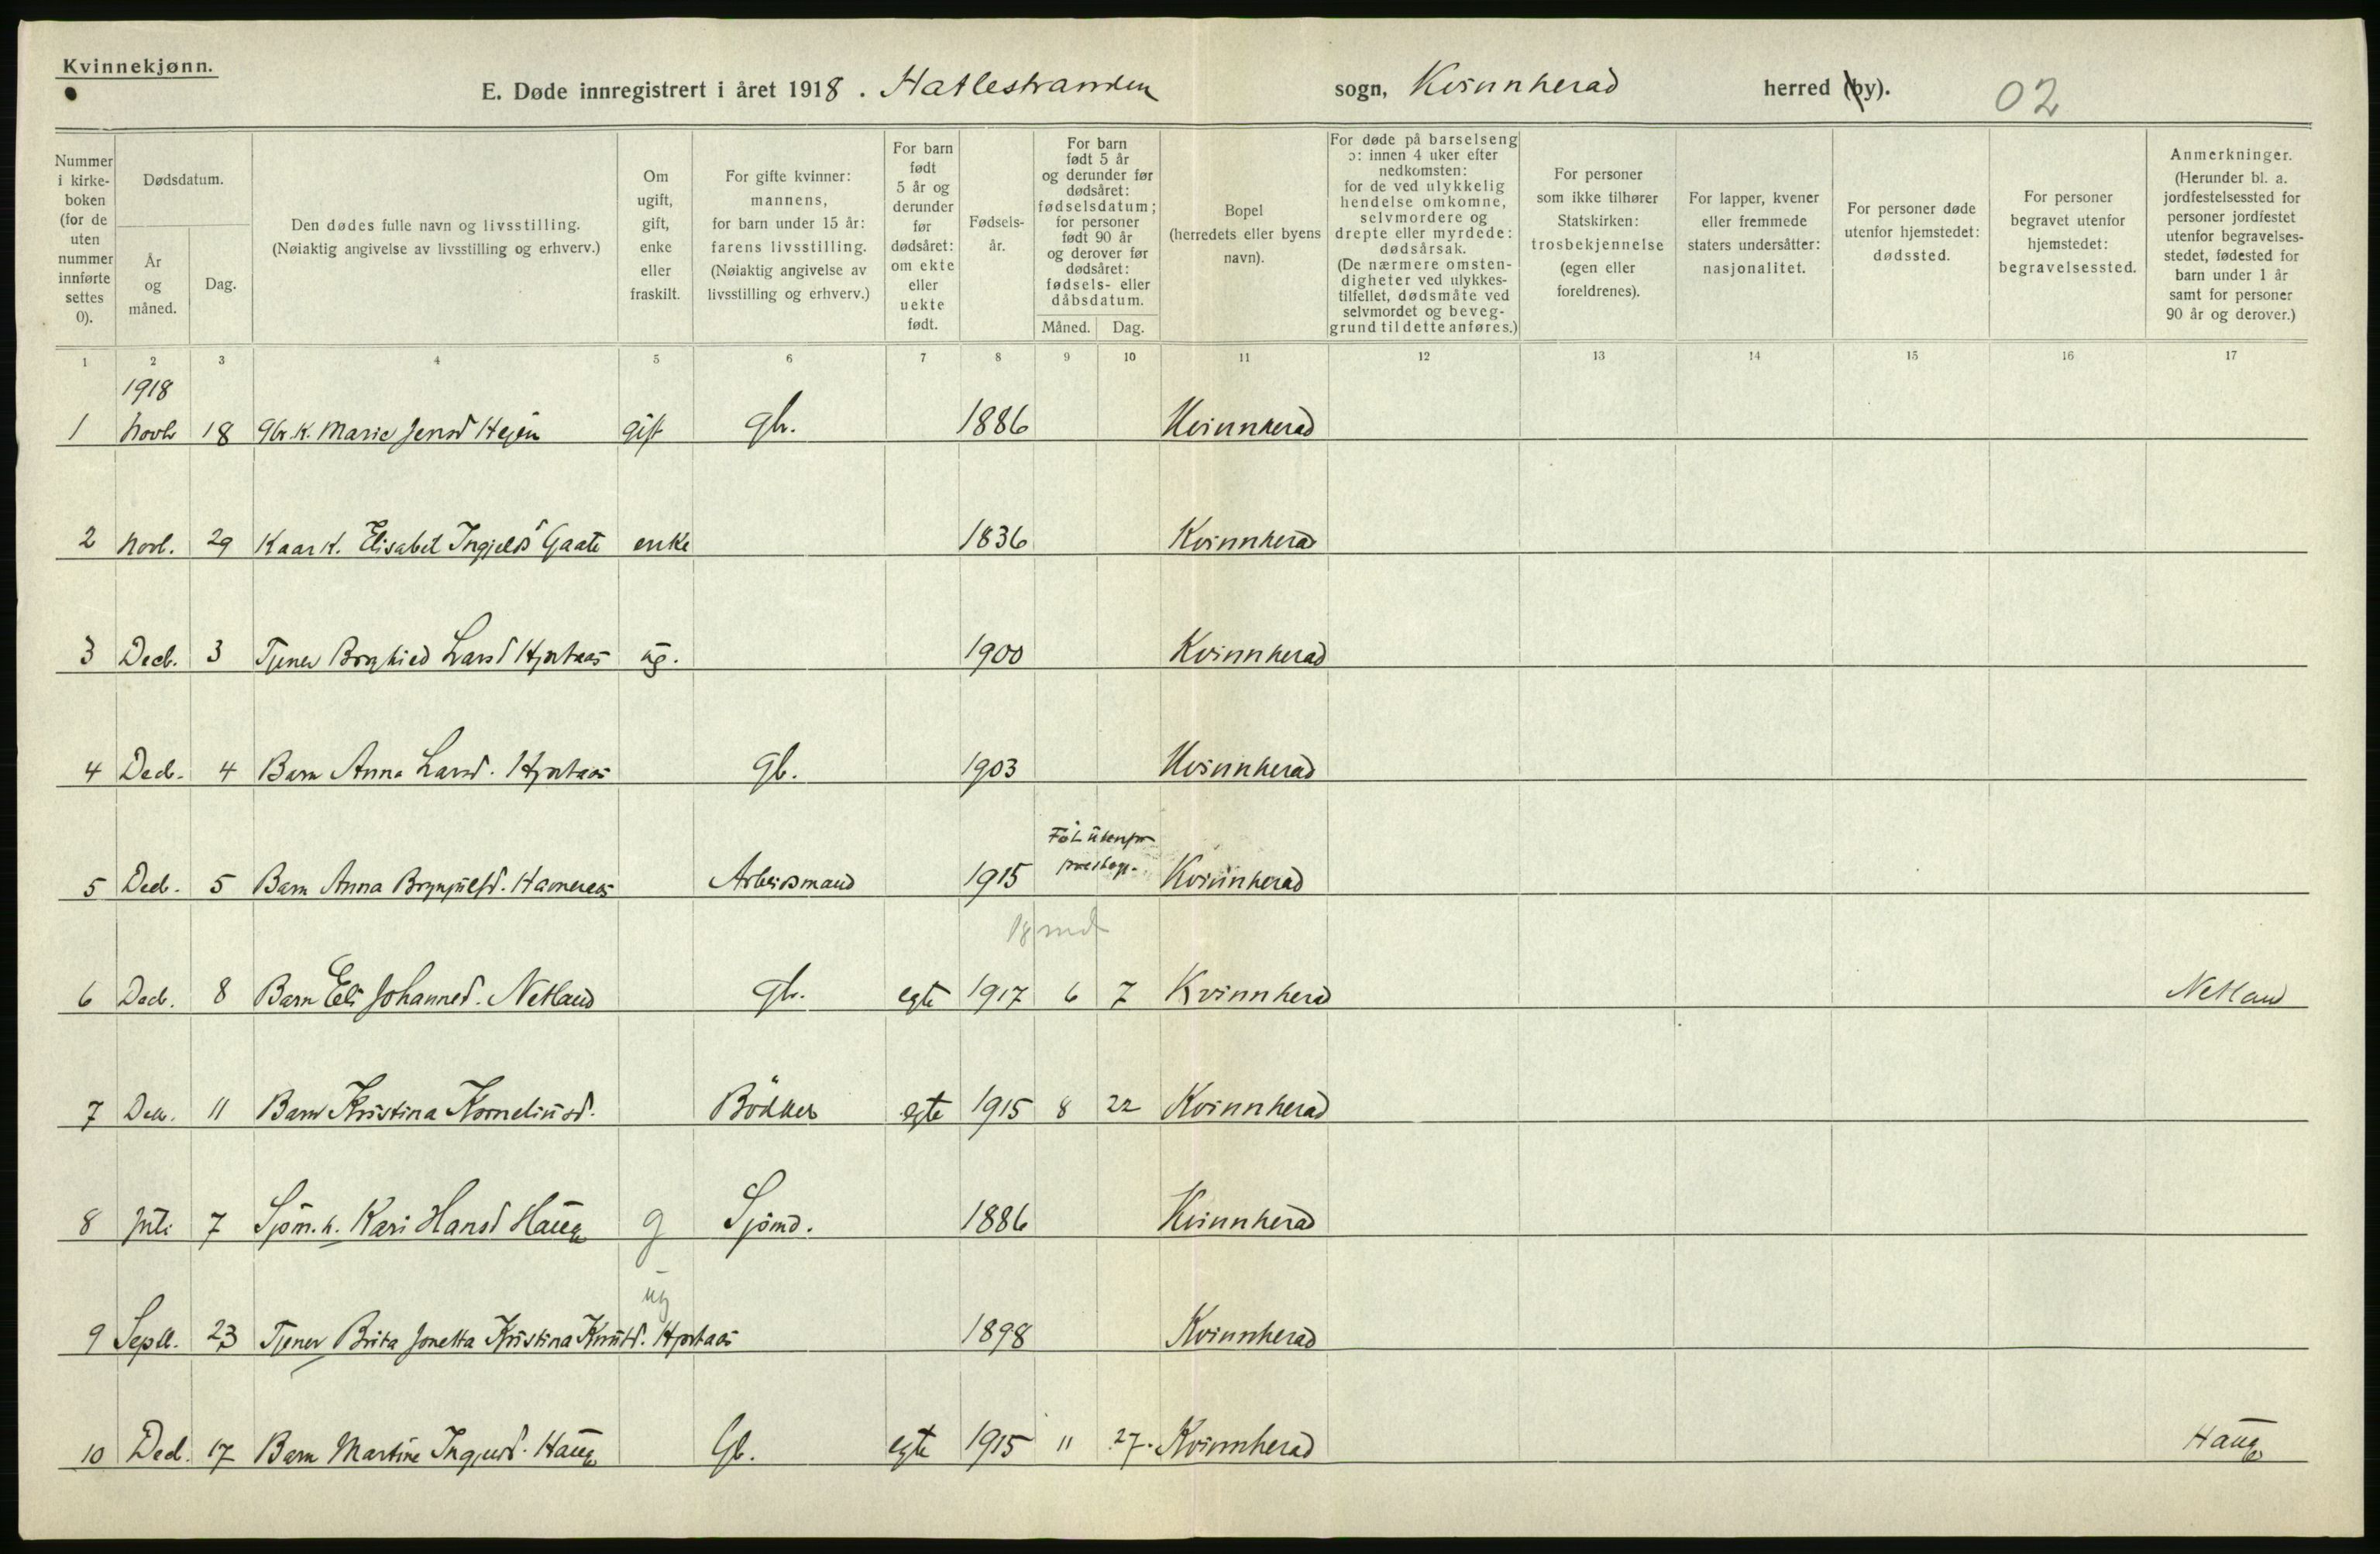 Kvinnekjønn.
E. Døde innregistrert i året 1918. Hatlestranden sogn, Kvinnherad herred (by). 02
Nummer i kirke-boken (for de uten nummer innførte settes 0).
Dødsdatum.
År og måned.
Dag.
Den dødes fulle navn og livsstilling.
(Nøiaktig angivelse av livsstilling og erhverv.)
Om ugift, gift, enke eller fraskilt.
For gifte kvinner: mannens, for barn under 15 år: farens livsstilling. (Nøiaktig angivelse av livsstilling og erhverv.)
For barn født 5 år og derunder før dødsåret: om ekte eller uekte født.
Fødsels-år.
For barn født 5 år og derunder før dødsåret: fødselsdatum; for personer født 90 år og derover før dødsåret: fødsels- eller dåbsdatum.
Måned. Dag.
Bopel (herredets eller byens navn).
For døde på barselseng ɔ: innen 4 uker efter nedkomsten: for de ved ulykkelig hendelse omkomne, selvmordere og drepte eller myrdede: dødsårsak. (De nærmere omsten-digheter ved ulykkes-tilfellet, dødsmåte ved selvmordet og beveg-grund til dette anføres.)
For personer som ikke tilhører Statskirken: trosbekjennelse (egen eller foreldrenes).
For lapper, kvener eller fremmede staters undersåtter: nasjonalitet.
For personer døde utenfor hjemstedet: dødssted.
For personer begravet utenfor hjemstedet: begravelsessted.
Anmerkninger. (Herunder bl. a. jordfestelsessted for personer jordfestet utenfor begravelses-stedet, fødested for barn under 1 år samt for personer 90 år og derover.)
1 2 3 4 5 6 7 8 9 10 11 12 13 14 15 16 17
1918
1 Novb 18 Gbr.k. Marie Jensd gift Gbr. 1886 Kvinnherad
2 Novb. 29 Kaark. Elisabet Ingjelds Gaate enke 1836 Kvinnherad
3 Decb. 3 Tjener Borghild Larsd Hjortaas ug. 1900 Kvinnherad
4 Decb. 4 Barn Anna Larsd. Hjortaas Gb. 1903 Kvinnherad
Föt utenfor
prestegj.
5 Decb. 5 Barn Anna Brynjulfsd. Arbeidsmand 1915 Kvinnherad
18 md
6 Decb. 8 Barn Eli Johannesd. Netland Gbr. egte 1917 6 7 Kvinnherad Netland
7 Decb. 11 Barn Kristina Korneliusd. Bödker egte 1915 8 22 Kvinnherad
8 Juli 7 Sjöm.k. Kari Hansd Haug g Sjömd. 1886 Kvinnherad
ug
9 Septb. 23 Tjener Brita Jonetta Kristina Knutsd. Hjortaas 1898 Kvinnherad
10 Decb. 17 Barn Martine Haug Gb. egte 1915 11 27. Kvinnherad Haug